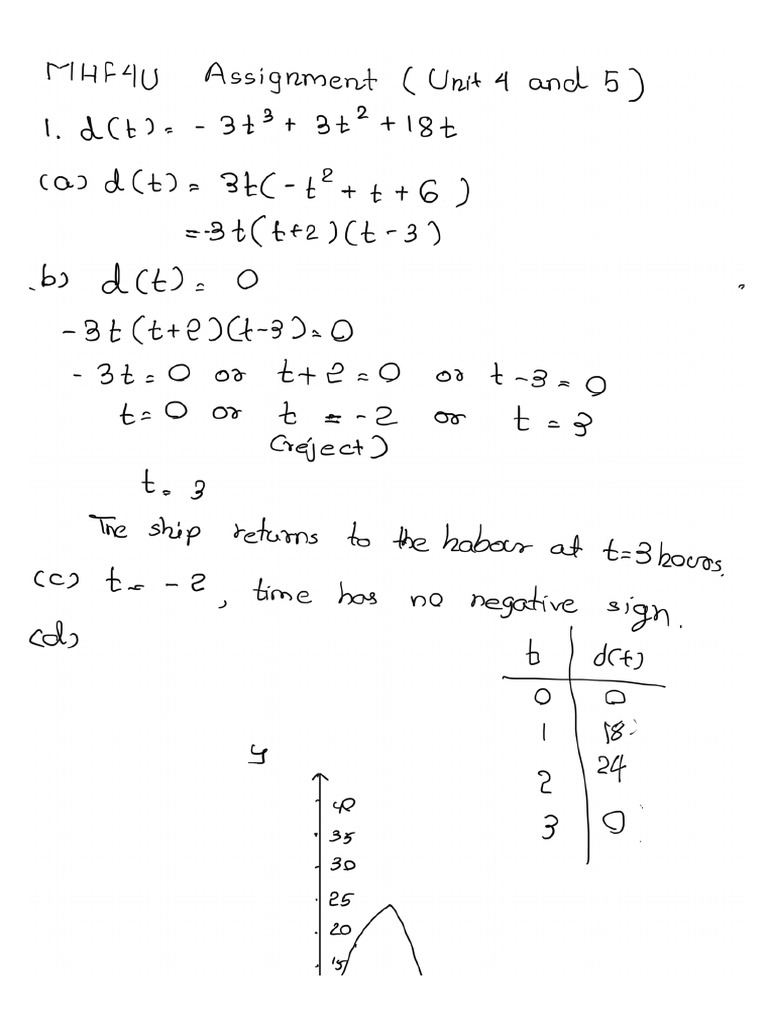 MHF4U Assignment (Unit 4 and 5)
1. d(t) = - 3t³ + 3t² + 18t
(a) d(t) = 3t(-t² + t + 6)
= -3t(t+2)(t-3)
.b) d(t) = 0
- 3t(t+2)(t-3) = 0
- 3t = 0 or t+2 = 0 or t-3 = 0
t = 0 or t = -2 or t = 3
(reject)
t = 3
The ship returns to the habour at t=3 hours.
(c) t = -2, time has no negative sign.
(d)
t d(t)
0 0
1 18
2 24
3 0
y
40
35
30
25
20
15